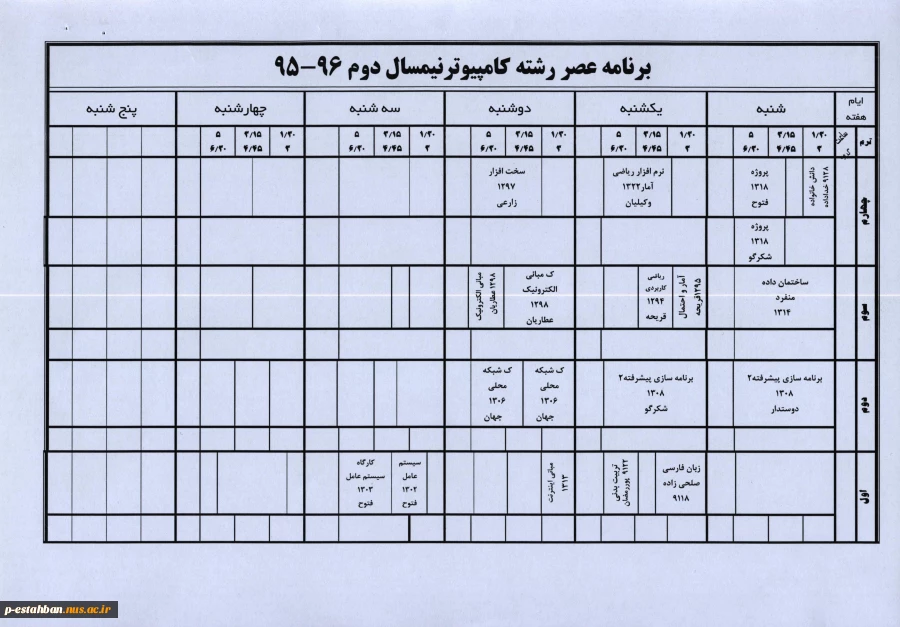 برنامه عصر رشته کامپیوترنیمسال دوم ۹۶-۹۵
ایام هفته
شنبه
یکشنبه
دوشنبه
سه شنبه
چهارشنبه
پنج شنبه
ترم
ساعت
۱/۳۰ ۳/۱۵ ۵
۳ ۴/۴۵ ۶/۳۰
۱/۳۰ ۳/۱۵ ۵
۳ ۴/۴۵ ۶/۳۰
۱/۳۰ ۳/۱۵ ۵
۳ ۴/۴۵ ۶/۳۰
۱/۳۰ ۳/۱۵ ۵
۳ ۴/۴۵ ۶/۳۰
۱/۳۰ ۳/۱۵ ۵
۳ ۴/۴۵ ۶/۳۰
چهارم
دانش خانواده
۹۱۲۸ خداداده
پروژه
۱۳۱۸
فتوح
نرم افزار ریاضی
آمار۱۳۲۲
وکیلیان
سخت افزار
۱۲۹۷
زارعی
پروژه
۱۳۱۸
شکرگو
سوم
ساختمان داده
منفرد
۱۳۱۴
آمار و احتمال
۱۲۹۵قریحه
ریاضی
کاربردی
۱۲۹۴
قریحه
ک مبانی
الکترونیک
۱۲۹۸
عطاریان
مبانی الکترونیک
۱۲۹۸ عطاریان
دوم
برنامه سازی پیشرفته۲
۱۳۰۸
دوستدار
برنامه سازی پیشرفته۲
۱۳۰۸
شکرگو
ک شبکه
محلی
۱۳۰۶
جهان
ک شبکه
محلی
۱۳۰۶
جهان
اول
زبان فارسی
صلحی زاده
۹۱۱۸
تربیت بدنی
۹۱۲۲ پوررمضان
مبانی اینترنت
۱۳۱۳
سیستم
عامل
۱۳۰۲
فتوح
کارگاه
سیستم عامل
۱۳۰۳
فتوح
p-estahban.nus.ac.ir